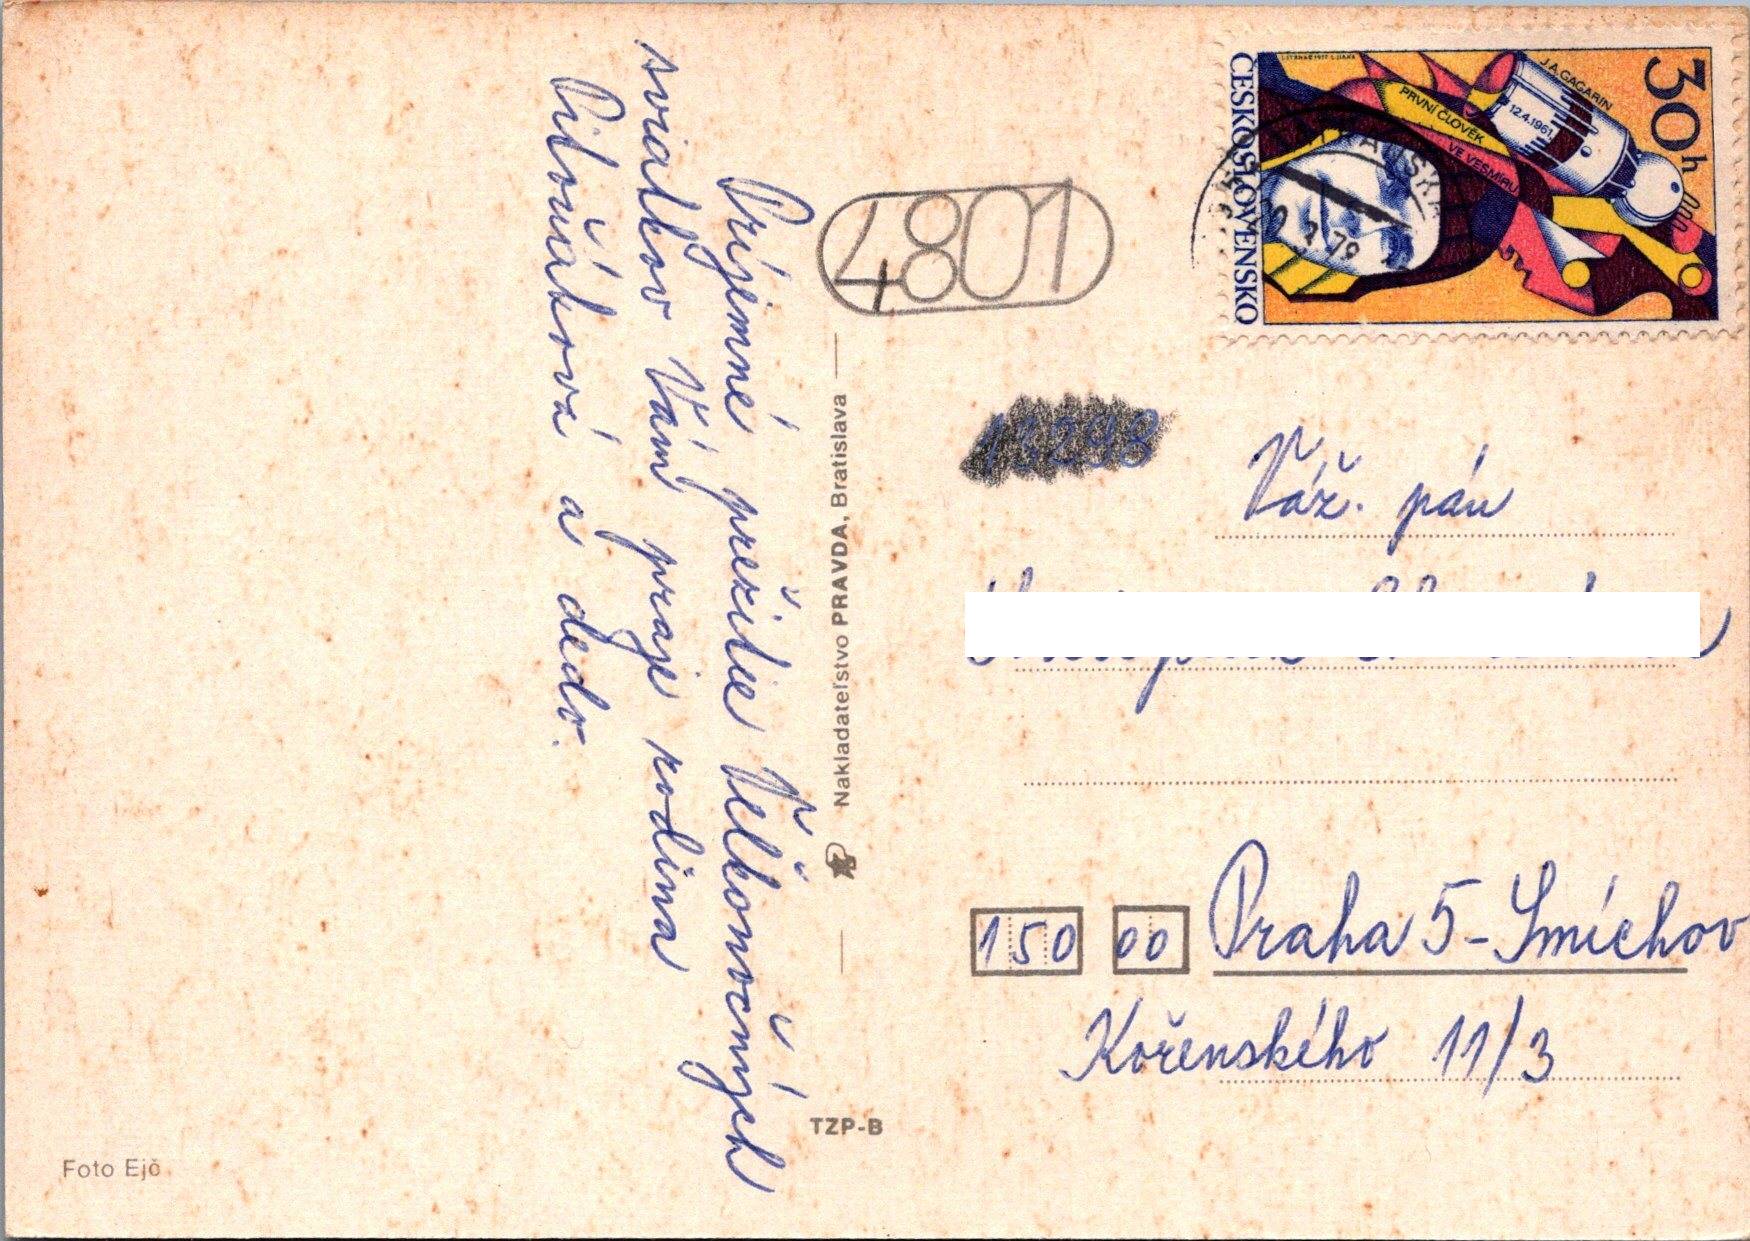 Príjemné prežitie Veľkonočných
sviatkov Vám praje rodina
a dedo.
Foto Ejč
TZP-B
Nakladateľstvo PRAVDA, Bratislava
4801
13298
ČESKOSLOVENSKO
30h
J. A. GAGARIN
12.4.1961
PRVNÍ ČLOVĚK
VE VESMÍRU
79
Váž. pán
150 00 Praha 5-Smíchov
Kořenského 11/3